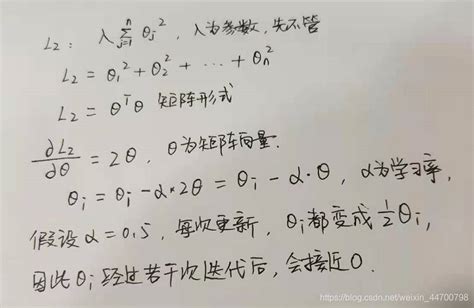 L₂: λ∑ⱼ₌₁ⁿ θⱼ², λ为参数, 先不管
L₂ = θ₁² + θ₂² + … + θₙ²
L₂ = θᵀθ 矩阵形式
∂L₂/∂θ = 2θ, θ为矩阵向量.
θᵢ = θᵢ - α*2θ = θᵢ - α·θ, α为学习率,
假设 α = 0.5, 每次更新, θᵢ都变成 ½θᵢ,
因此 θᵢ 经过若干次迭代后, 会接近0.
https://blog.csdn.net/weixin_44700798